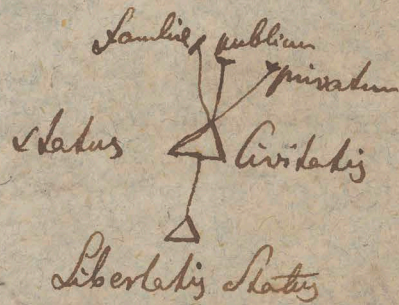 familiæ publicum
privatum
status Civitatis
Libertatis Status